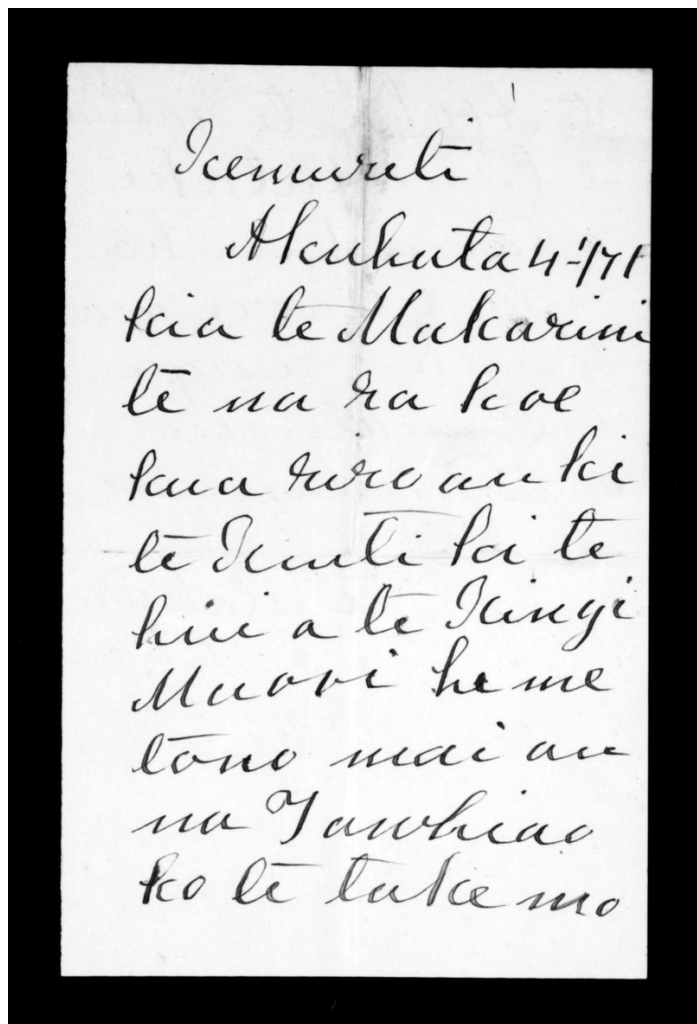 Kemureti
Akuhata 4th/71
kia te Makarini
te na ra koe
kua riro au ki
te Kuiti ki te
hui a te Kingi
Maori he me
tono mai au
na Tawhiao
ko te take mo